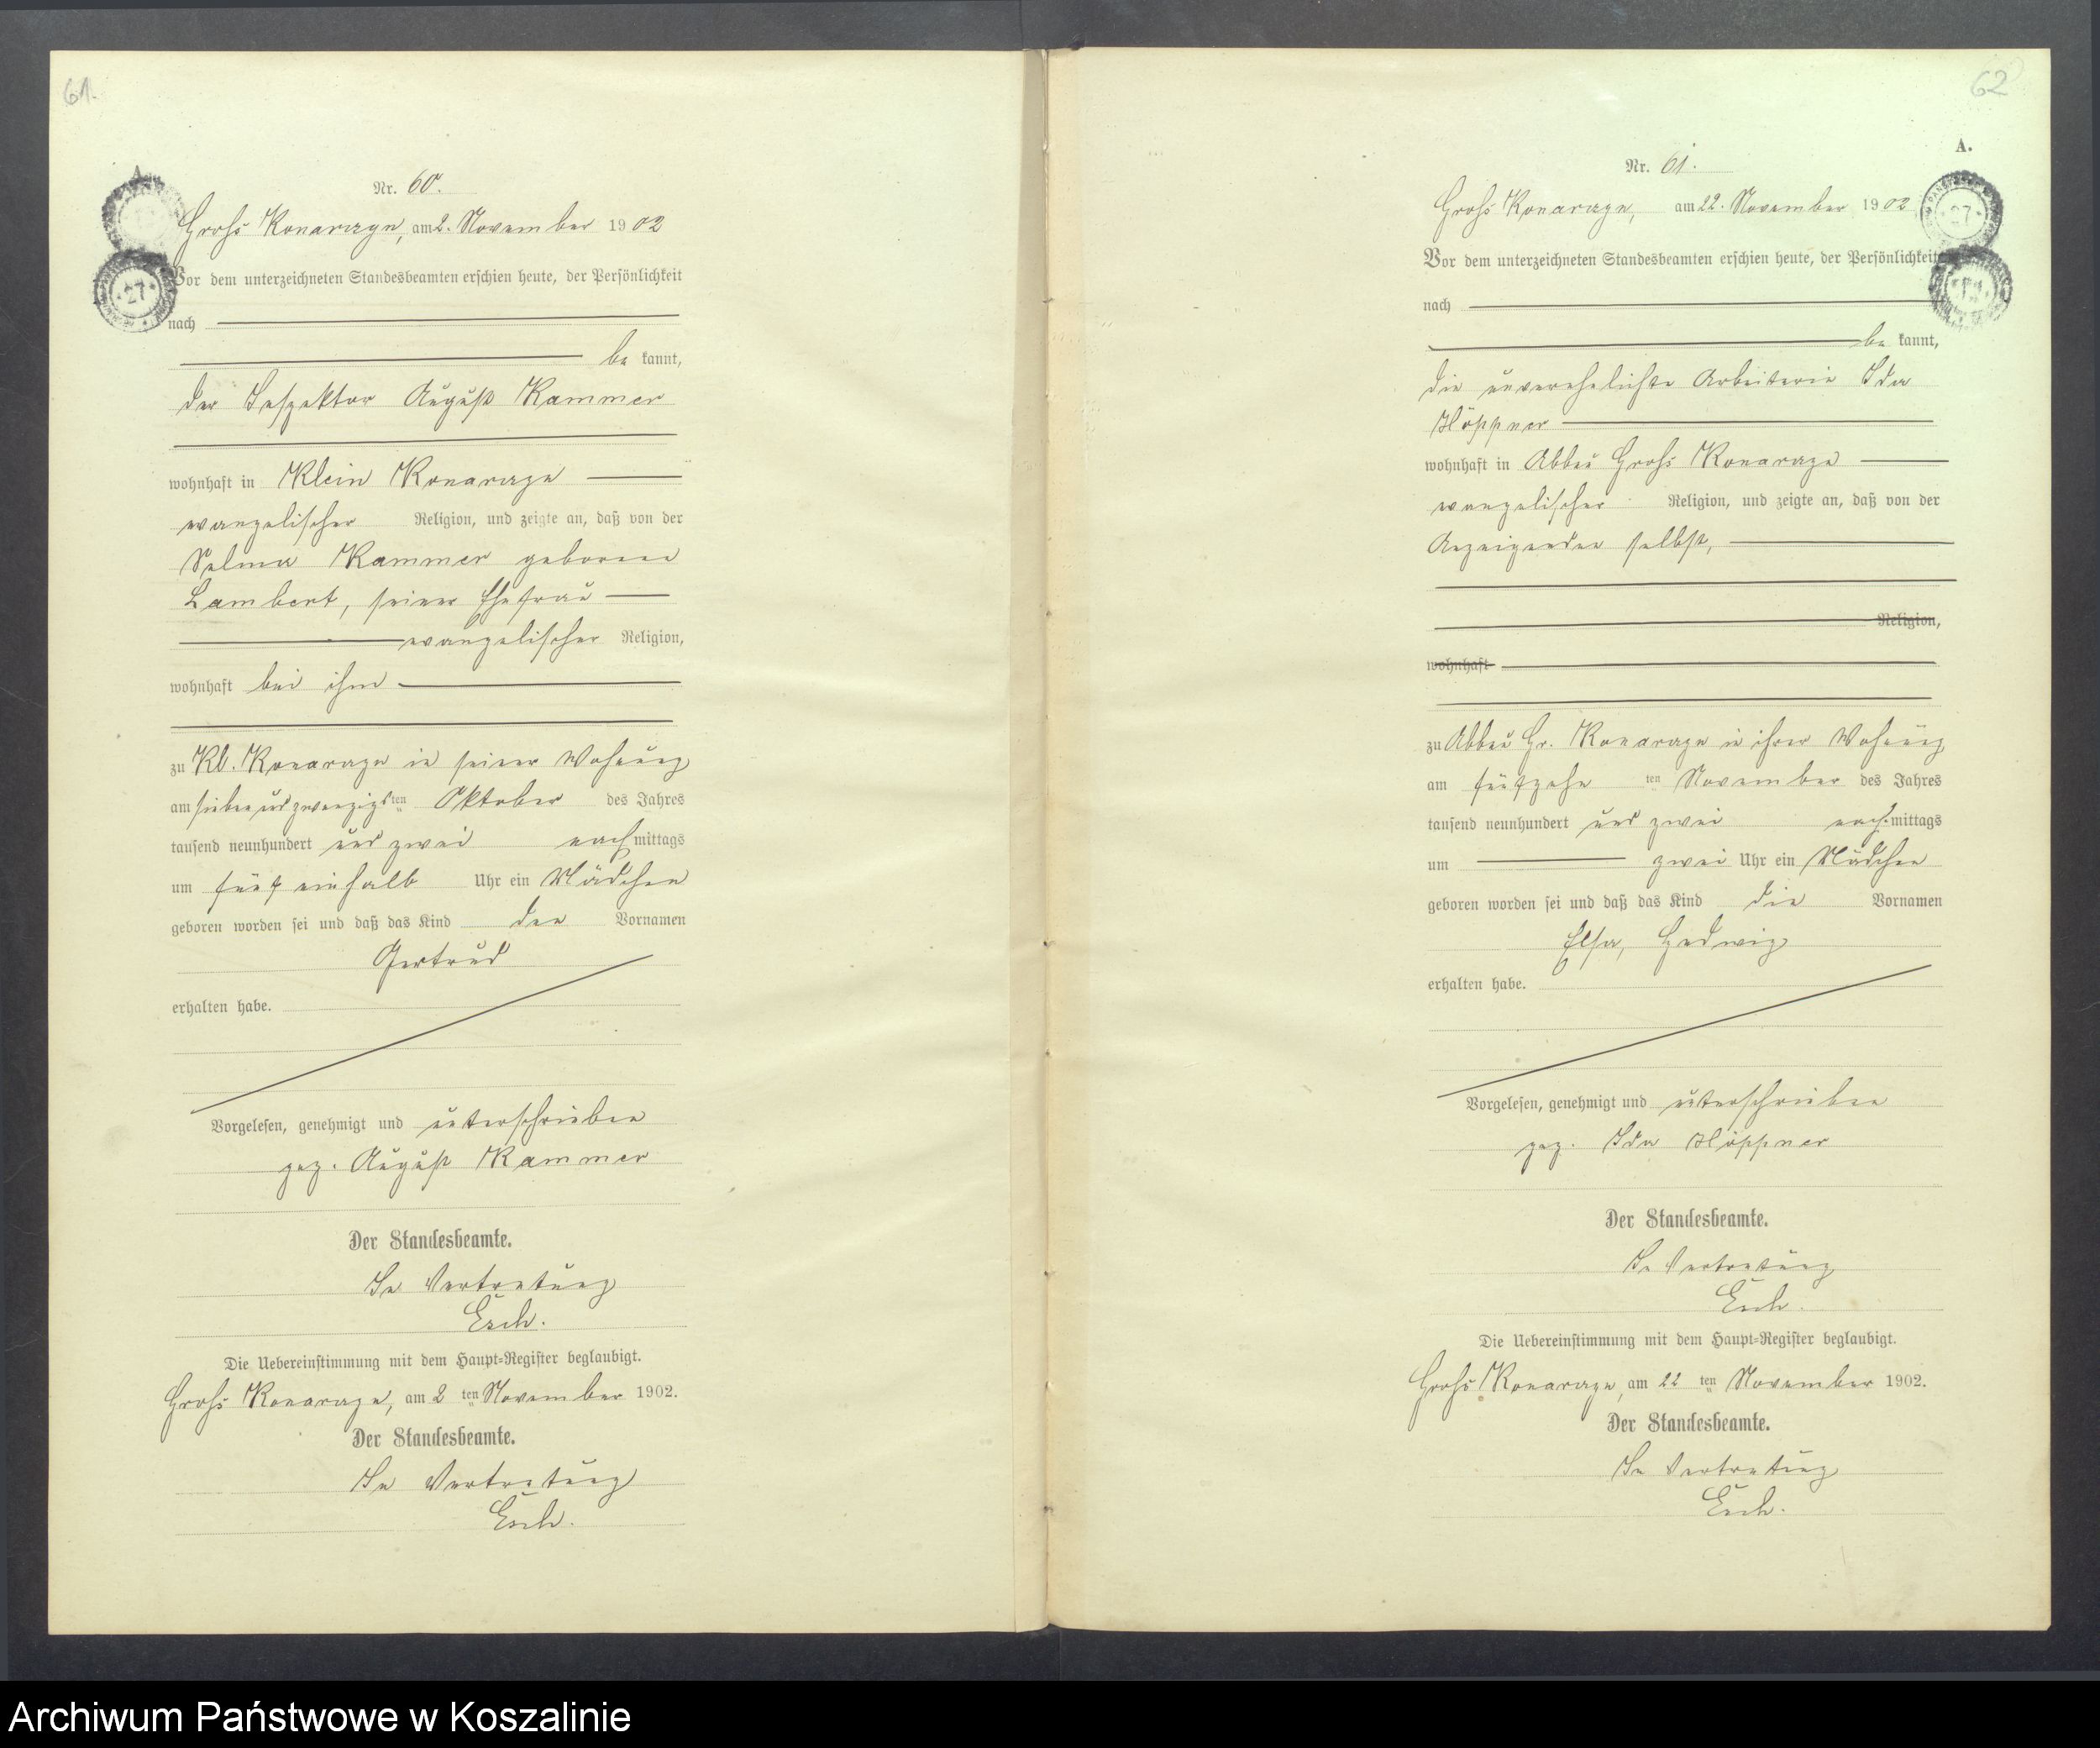 61.
A.
Nr. 60.
Groß Konarzyn, am 2. November 1902
Vor dem unterzeichneten Standesbeamten erschien heute, der Persönlichkeit
nach
be kannt,
der Inspektor August Kammer
wohnhaft in Klein Konarzyn
evangelischer Religion, und zeigte an, daß von der
Selma Kammer geborene
Lambert, seiner Ehefrau
evangelischer Religion,
wohnhaft bei ihm
zu Kl. Konarzyn in seiner Wohnung
am sieben und zwanzigsten Oktober des Jahres
tausend neunhundert und zwei nachmittags
um fünf einhalb Uhr ein Mädchen
geboren worden sei und daß das Kind den Vornamen
Gertrud
erhalten habe.
Vorgelesen, genehmigt und unterschrieben
gez. August Kammer
Der Standesbeamte.
In Vertretung
Esch.
Die Uebereinstimmung mit dem Haupt-Register beglaubigt.
Groß Konarzyn, am 2 ten November 1902.
Der Standesbeamte.
In Vertretung
Esch.
62
A.
Nr. 61.
Groß Konarzyn, am 22. November 1902
27
Vor dem unterzeichneten Standesbeamten erschien heute, der Persönlichkeit
27
nach
be kannt,
die unverehelichte Arbeiterin Ida
Höppner
wohnhaft in Abbau Groß Konarzyn
evangelischer Religion, und zeigte an, daß von der
Anzeigenden selbst,
Religion,
wohnhaft
zu Abbau Gr. Konarzyn in ihrer Wohnung
am fünfzehn ten November des Jahres
tausend neunhundert und zwei nachmittags
um zwei Uhr ein Mädchen
geboren worden sei und daß das Kind die Vornamen
Elsa, Hedwig
erhalten habe.
Vorgelesen, genehmigt und unterschrieben
gez. Ida Höppner
Der Standesbeamte.
In Vertretung
Esch.
Die Uebereinstimmung mit dem Haupt-Register beglaubigt.
Groß Konarzyn, am 22 ten November 1902.
Der Standesbeamte.
In Vertretung
Esch.
Archiwum Państwowe w Koszalinie